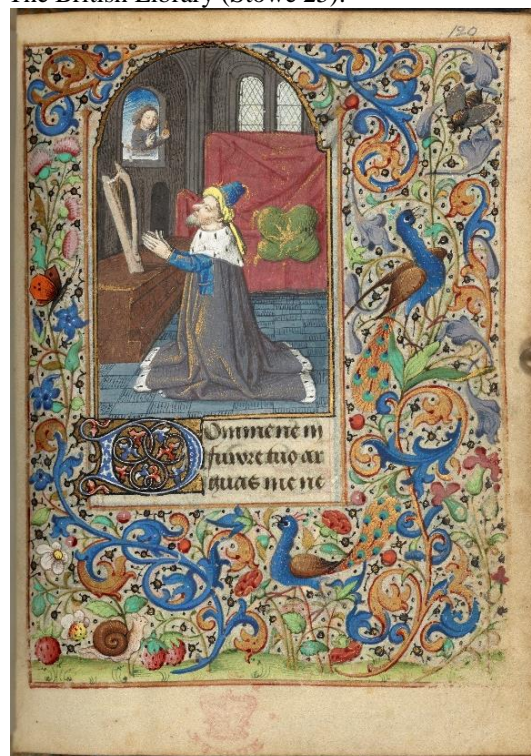 The British Library (Stowe 25).
120
Domine ne in
furore tuo ar
guas me ne